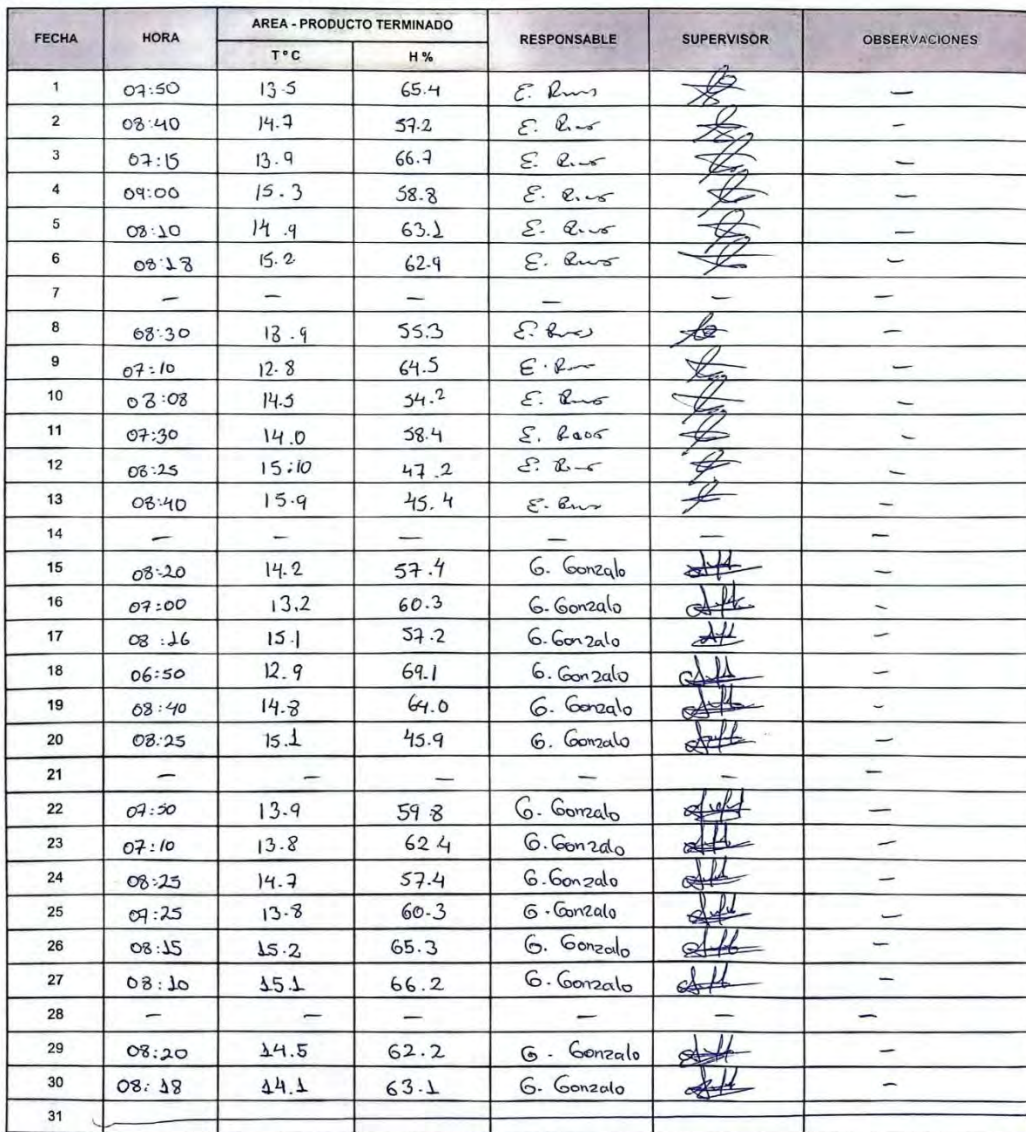 FECHA HORA AREA - PRODUCTO TERMINADO RESPONSABLE SUPERVISOR OBSERVACIONES
T°C H %
1 07:50 13.5 65.4 E. Rios —
2 08:40 14.7 57.2 E. Rios —
3 07:15 13.9 66.7 E. Rios —
4 09:00 15.3 58.8 E. Rios —
5 08:10 14.9 63.1 E. Rios —
6 08:18 15.2 62.9 E. Rios —
7 — — — — — —
8 08:30 13.9 55.3 E. Rios —
9 07:10 12.8 64.5 E. Rios —
10 08:08 14.5 54.2 E. Rios —
11 07:30 14.0 58.4 E. Rios —
12 08:25 15:10 47.2 E. Rios —
13 08:40 15.9 45.4 E. Rios —
14 — — — — — —
15 08:20 14.2 57.4 G. Gonzalo —
16 07:00 13.2 60.3 G. Gonzalo —
17 08:16 15.1 57.2 G. Gonzalo —
18 06:50 12.9 69.1 G. Gonzalo —
19 08:40 14.8 64.0 G. Gonzalo —
20 08:25 15.1 45.9 G. Gonzalo —
21 — — — — — —
22 07:50 13.9 59.8 G. Gonzalo —
23 07:10 13.8 62.4 G. Gonzalo —
24 08:25 14.7 57.4 G. Gonzalo —
25 07:25 13.8 60.3 G. Gonzalo —
26 08:15 15.2 65.3 G. Gonzalo —
27 08:10 15.1 66.2 G. Gonzalo —
28 — — — — — —
29 08:20 14.5 62.2 G. Gonzalo —
30 08:18 14.1 63.1 G. Gonzalo —
31